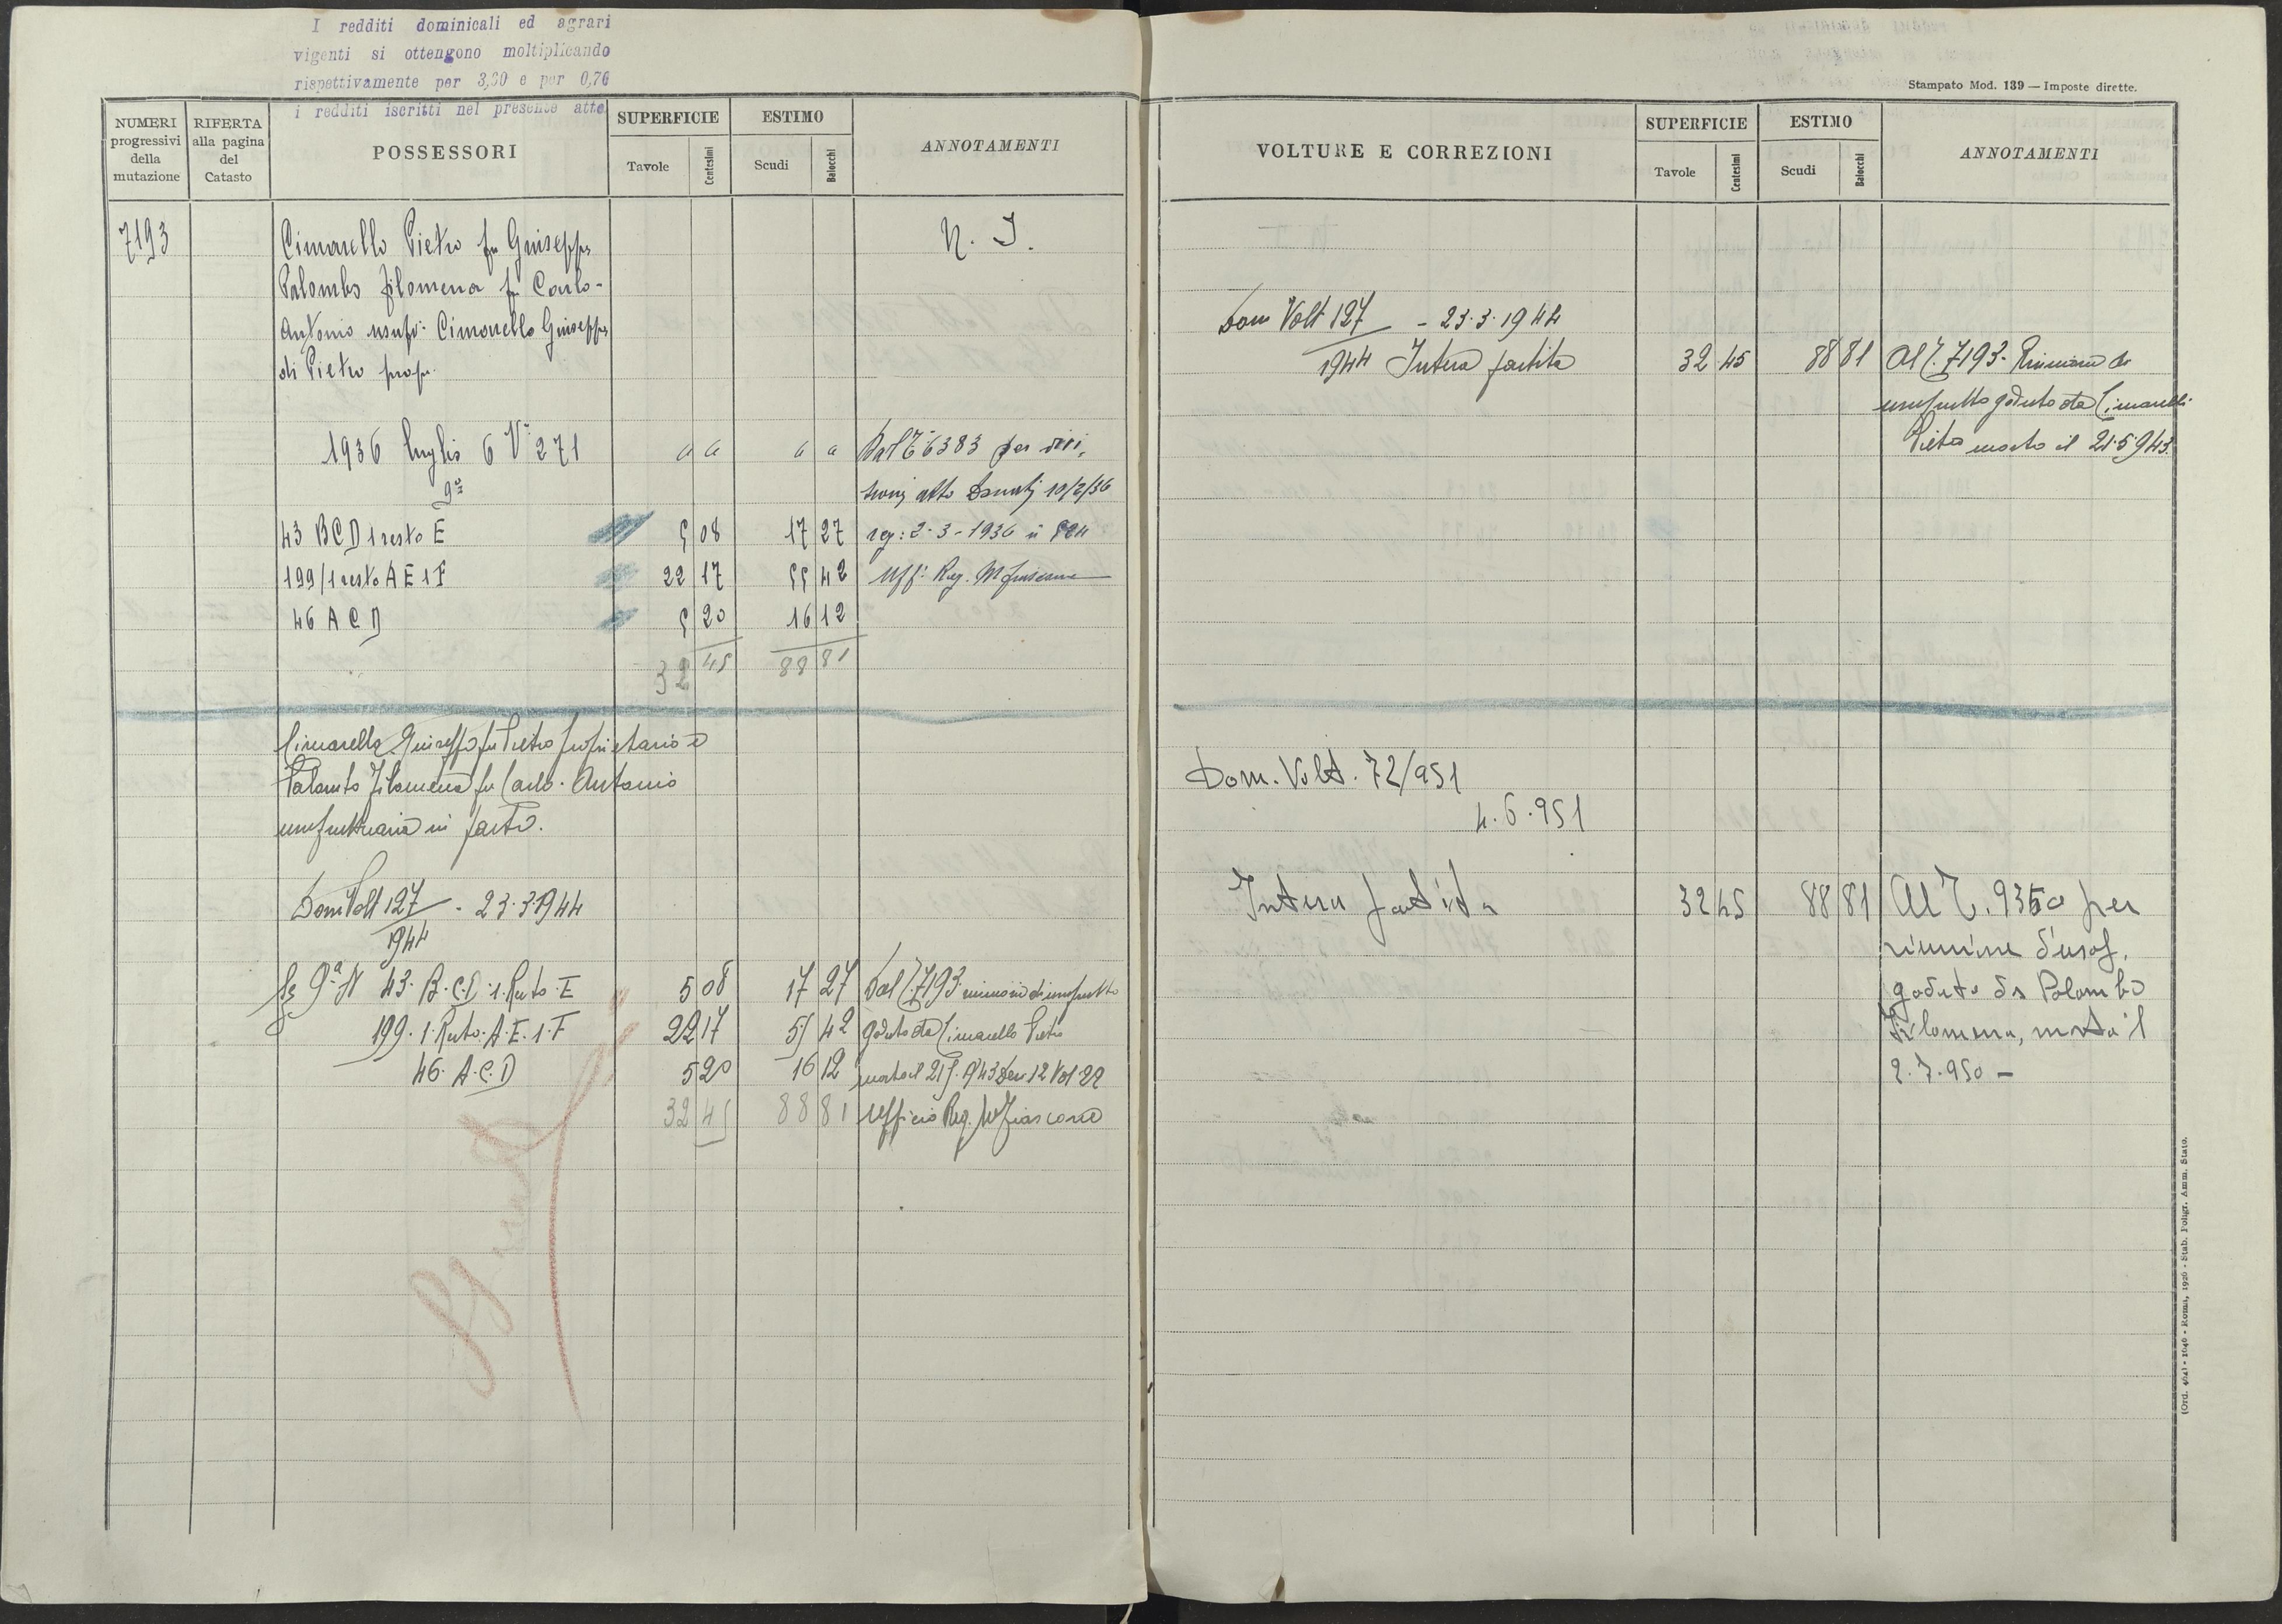 I redditi dominicali ed agrari
vigenti si ottengono moltiplicando
rispettivamente per 3,30 e per 0,76
i redditi iscritti nel presente atto
NUMERI progressivi della mutazione
RIFERTA alla pagina del Catasto
POSSESSORI
SUPERFICIE
Tavole
Centesimi
ESTIMO
Scudi
Baiocchi
ANNOTAMENTI
7193
Cimarello Pietro fu Giuseppe
N. I.
Palombo Filomena fu Carlo-
Antonio usufr: Cimarello Giuseppe
di Pietro propr.
1936 luglio 6 V° 271 " " " " Dal T 6383 per divi,
9ª
atto Donati 10/2/36
43 B C D 1 resto E 5 08 17 27 reg: 2-3-1936 n
199/1 resto A E 1 F 22 17 55 42 Uff: Reg. Mfiascone
46 A C D 5 20 16 12
32 45 88 81
Cimarello Giuseppe fu Pietro proprietario e
Palombo Filomena fu Carlo-Antonio
usufruttuaria in parte.
Dom Volt 127 - 23-3-1944
1944
Sz 9ª N 43. B.C.D. 1. Resto. E 5 08 17 27 Dal T. 7193. riunione di usufrutto
199. 1. Resto. A. E. 1. F 22 17 55 42 goduto da Cimarello Pietro
46. A. C. D 5 20 16 12 morto il 21.5.943 Den 12 Vol 22
32 45 88 81 Ufficio Reg. Mfiascone
Stampato Mod. 139 — Imposte dirette.
VOLTURE E CORREZIONI
SUPERFICIE
Tavole
Centesimi
ESTIMO
Scudi
Baiocchi
ANNOTAMENTI
Dom Volt 127 - 23-3-1944
1944 Intera partita 32 45 88 81 Al T. 7193- Riunione di
usufrutto goduto da Cimarello
Pietro morto il 21.5.943.
Dom. Volt. 72/951
4.6.951
Intera partita 32 45 88 81 Al T. 9350 per
riunione d'usof.
goduto da Palombo
Filomena, morta il
2.7.950 -
(Ord. 404) - 1040 - Roma, 1926 - Stab. Poligr. Amm. Stato.